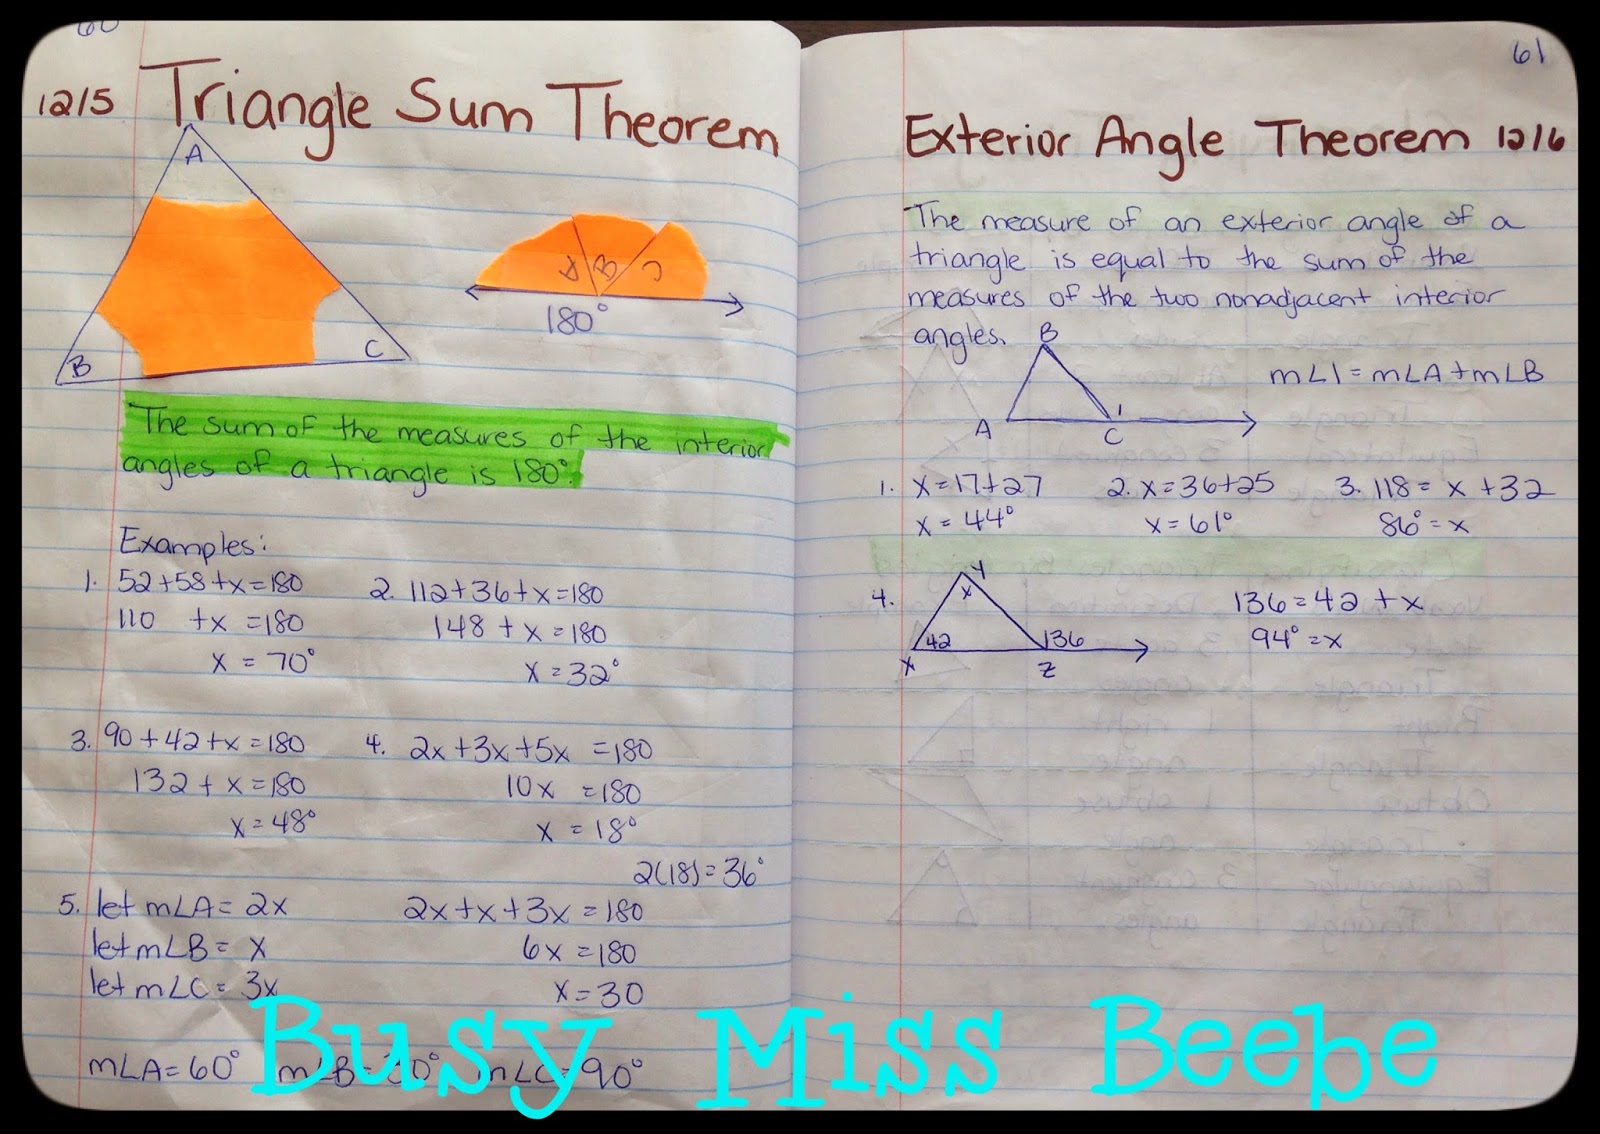 60
12/5 Triangle Sum Theorem
A
B
C
A B C
180°
The sum of the measures of the interior
angles of a triangle is 180°.
Examples:
1. 52+58+x=180
110 +x =180
x = 70°
2. 112+36+x=180
148 + x = 180
x = 32°
3. 90+42+x=180
132 + x = 180
x = 48°
4. 2x+3x+5x =180
10x =180
x = 18°
2(18)=36°
5. let m∠A= 2x
let m∠B= x
let m∠C= 3x
2x+x+3x=180
6x =180
x=30
m∠A=60° m∠B=30° m∠C=90°
61
Exterior Angle Theorem 12/6
The measure of an exterior angle of a
triangle is equal to the sum of the
measures of the two nonadjacent interior
angles.
B
A
C
1
m∠1=m∠A+m∠B
1. x=17+27
x = 44°
2. x=36+25
x=61°
3. 118= x +32
86°=x
4.
Y
x
42
136
X
Z
136=42 +x
94°=x
Busy Miss Beebe